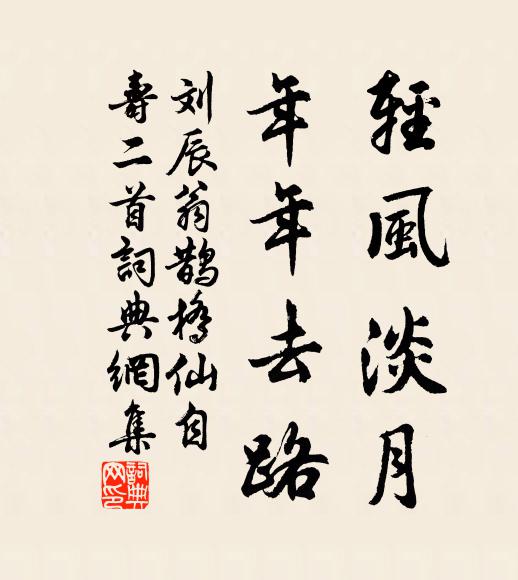 輕風淡月
年年去路
刘辰翁鵲橋仙自
壽二首詞典網集
詞典
网印